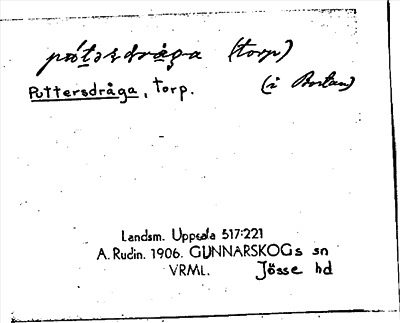 (torp)
Puttersdråga, torp. (i Bortan)
Landsm. Uppsala 517:221
A. Rudin. 1906. GUNNARSKOGs sn
VRML. Jösse hd